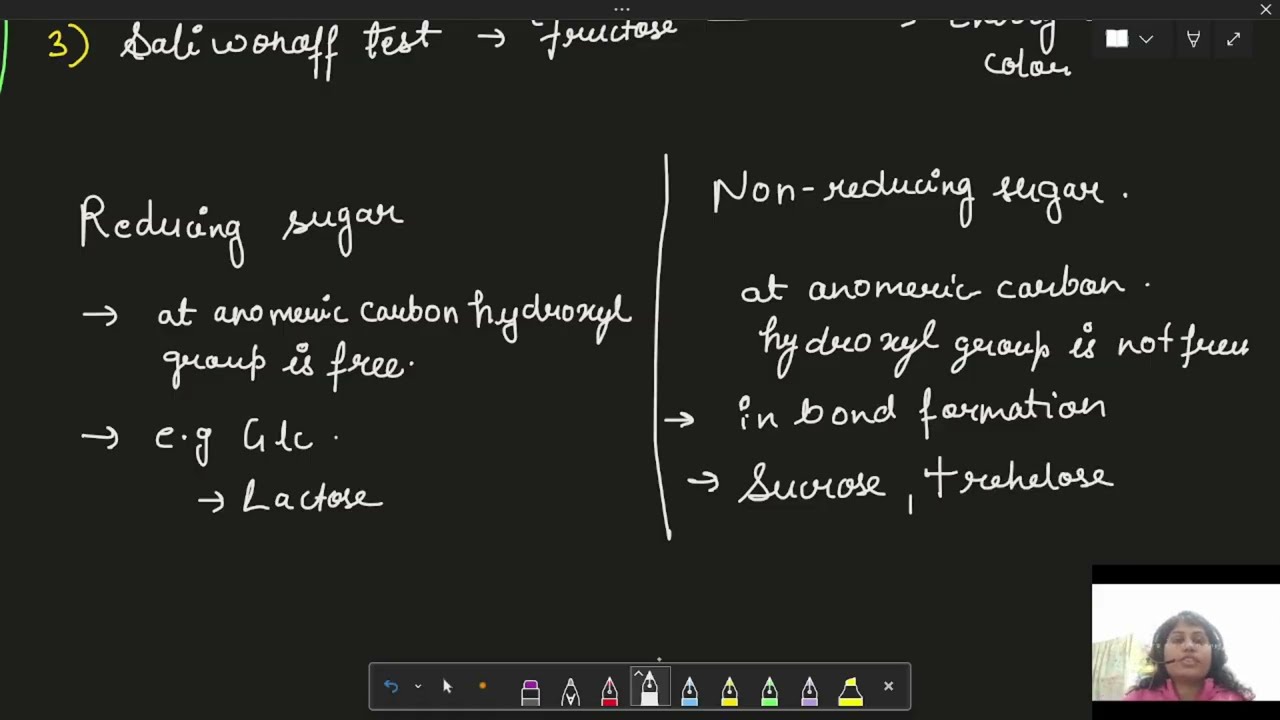 3) Saliwonaff test → fructose
color
Reducing sugar
→ at anomeric carbon hydroxyl
group is free.
→ e.g Glc .
→ Lactose
Non-reducing sugar .
at anomeric carbon .
hydroxyl group is not free
→ in bond formation
→ Sucrose , trehelose